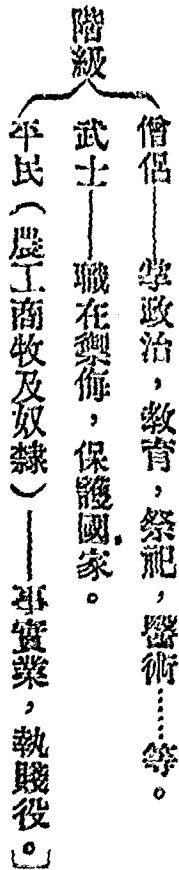 階級
僧侶——掌政治，敎育，祭祀，醫術……等。
武士——職在禦侮，保護國家。
平民（農工商牧及奴隸）——事實業，執賤役。〕